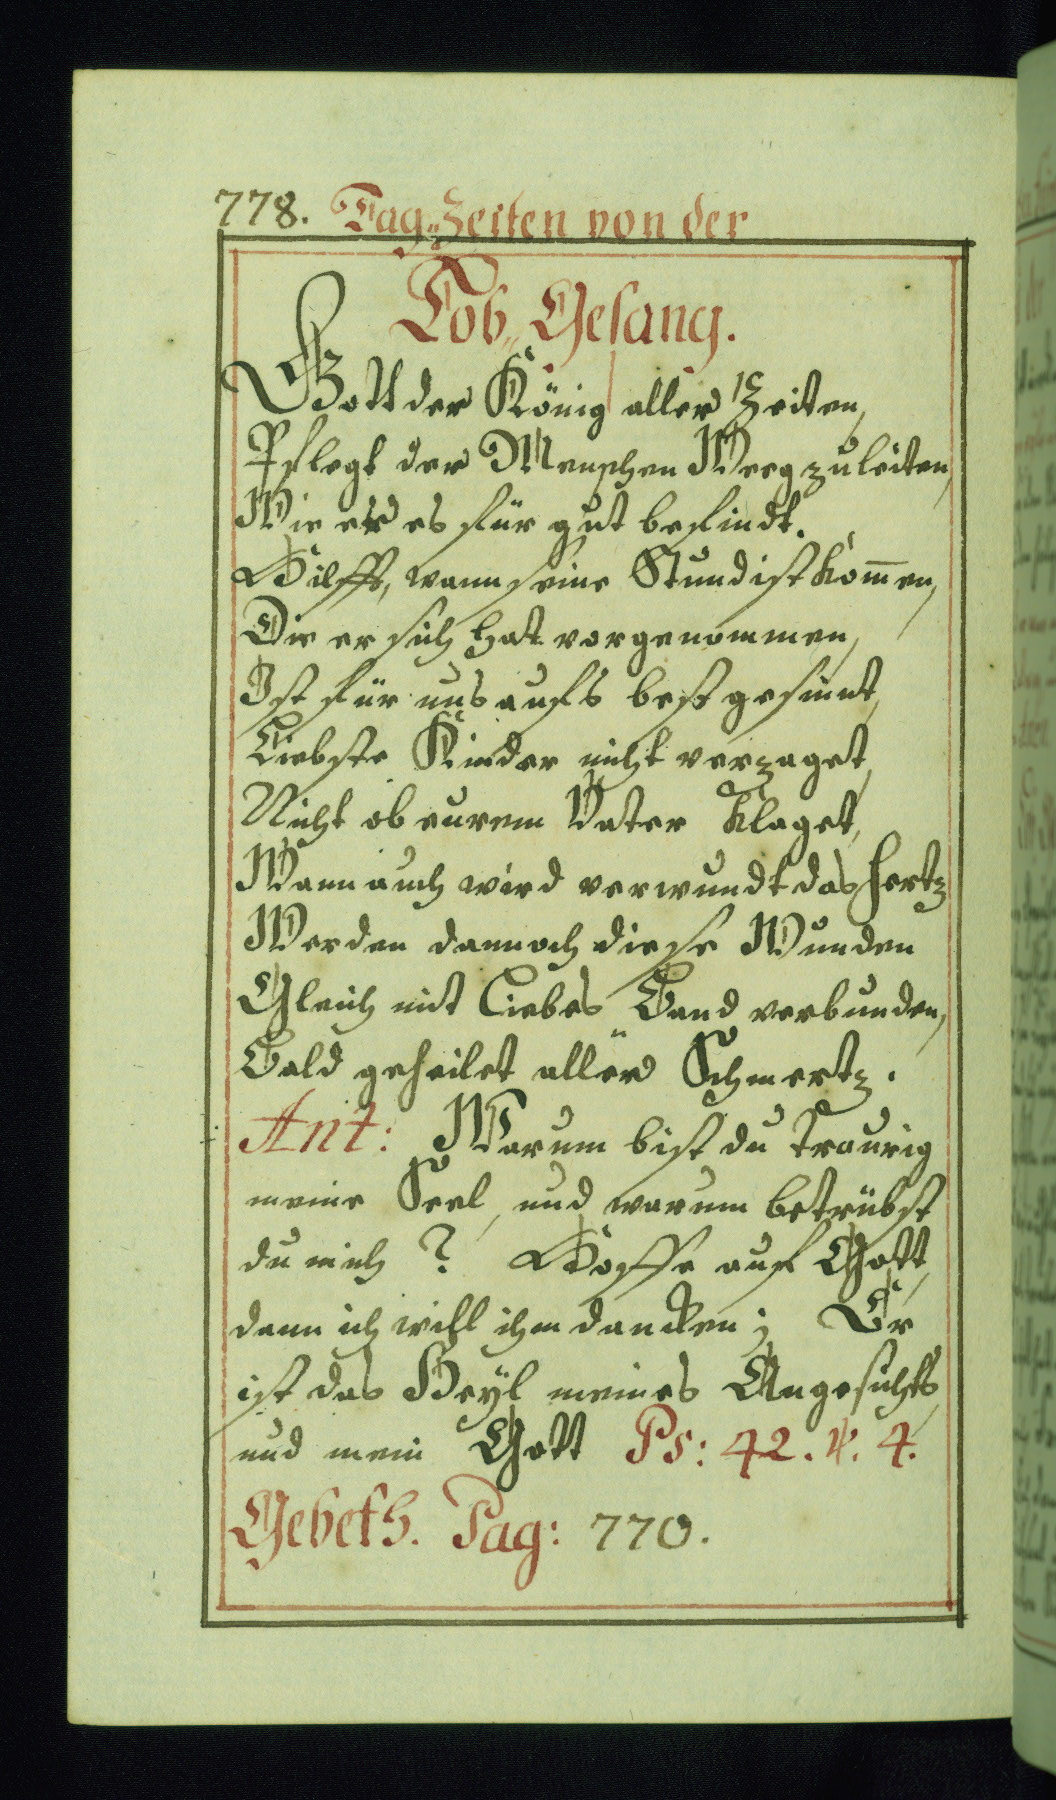 778. Tag-Zeiten von der
Lob-Gesang.
Gott der König aller Zeiten,
Pflegt der Menschen Weeg zuleiten,
Wie er es für gut befindt.
Hilfft, wann seine Stund ist kom̄en,
Die er sich hat vorgenommen,
Ist für uns aufs best gesinnt,
Liebste Kinder nicht verzaget,
Nicht ob eurem Vater klaget,
Wann auch wird verwundt das Hertz
Werden dannoch diese Wunden
Gleich mit Liebes Band verbunden,
Bald geheilet aller Schmertz.
Ant: Warum bist du traurig
meine Seel, und warum betrübst
du mich? Hoffe auf Gott,
dann ich will ihm dancken; Er
ist das Heyl meines Angesichts,
und mein Gott Ps: 42. ℣. 4.
Gebeth. Pag: 770.